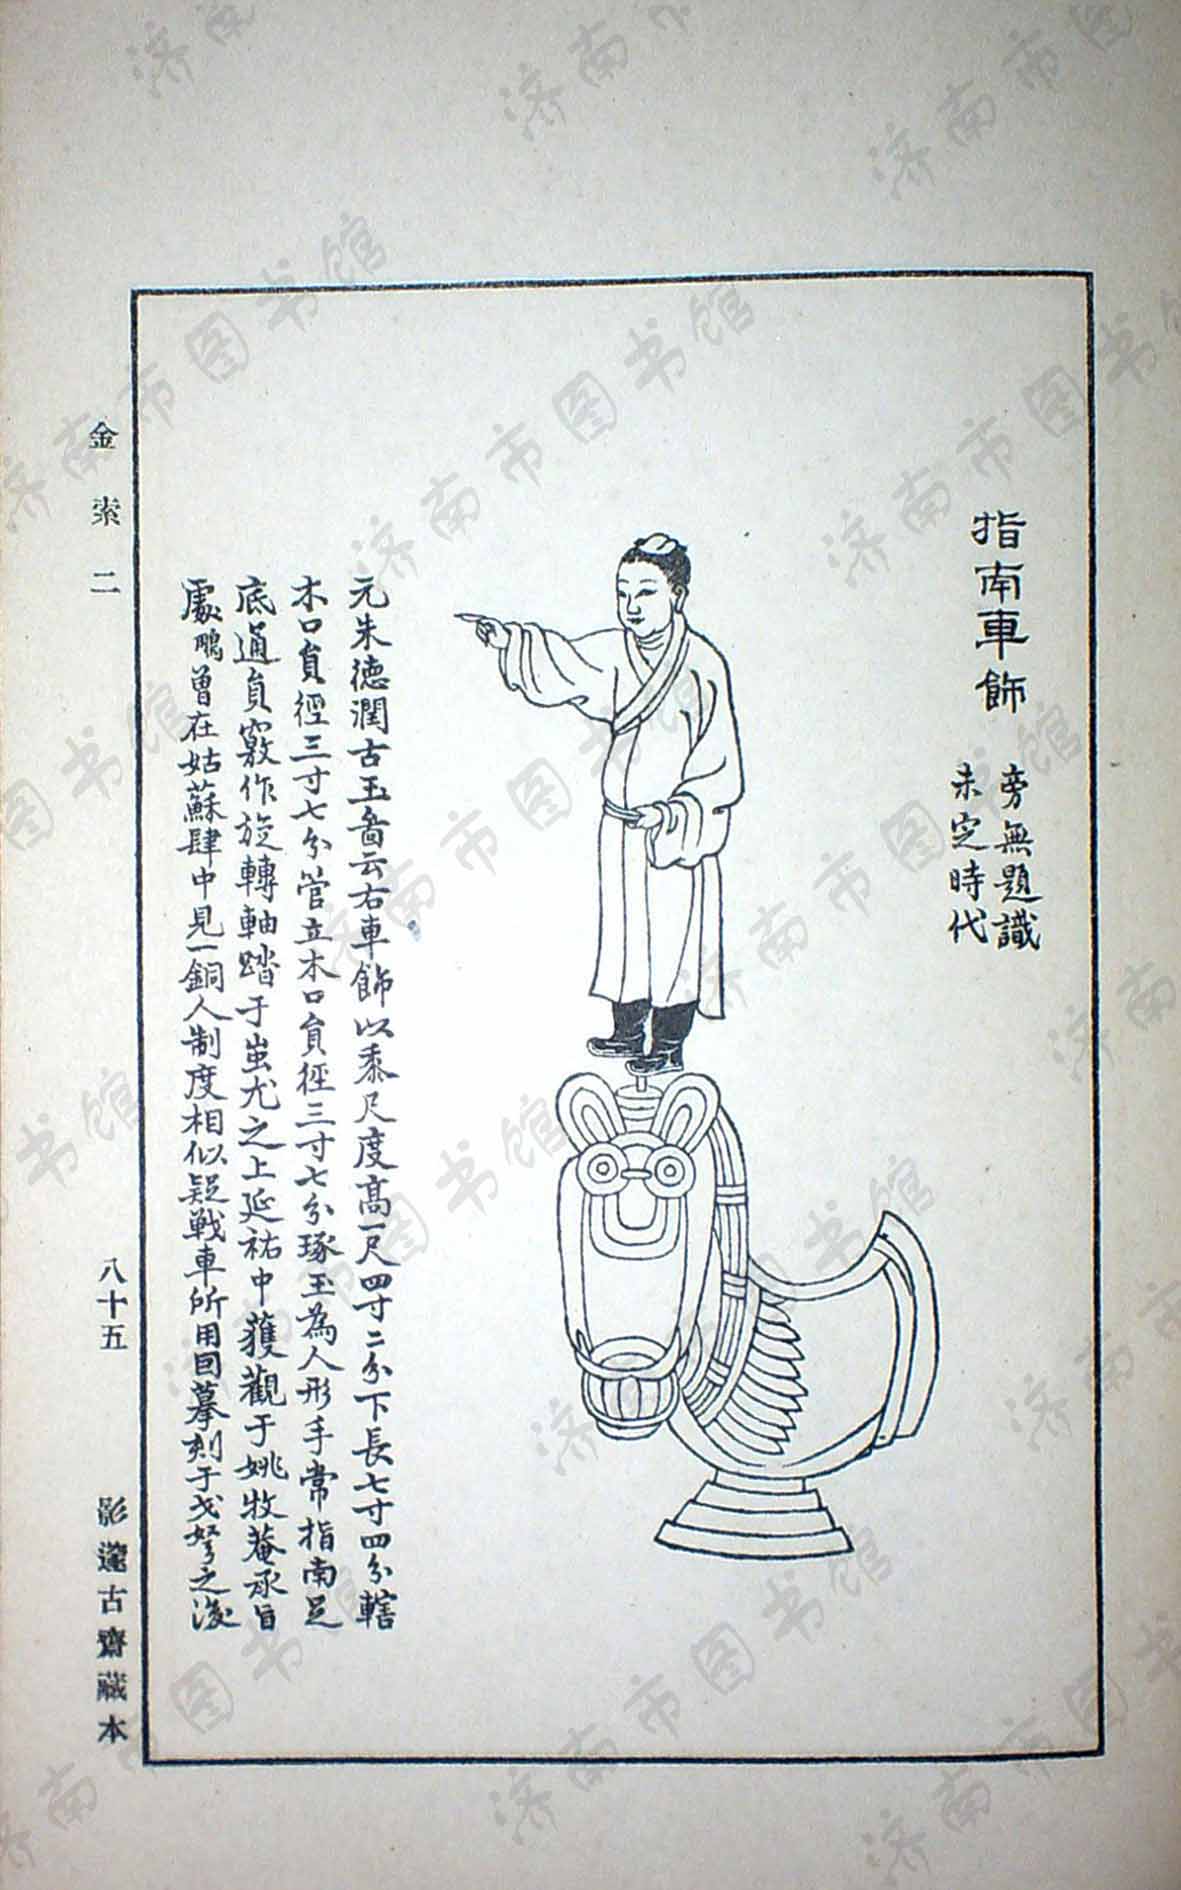 指南車飾
旁無題識
未定時代
元朱德潤古玉啚云右車飾以黍尺度高一尺四寸二分下長七寸四分轄
木口負徑三寸七分管立木口負徑三寸七分琢玉為人形手常指南足
底通負竅作旋轉軸踏于蚩尤之上延祐中獲觀于姚牧菴承旨
處鵬曾在姑蘇肆中見一銅人制度相似疑戰車所用回摹刻于戈弩之後
金索二
八十五
影邃古齋藏本
济南市图书馆